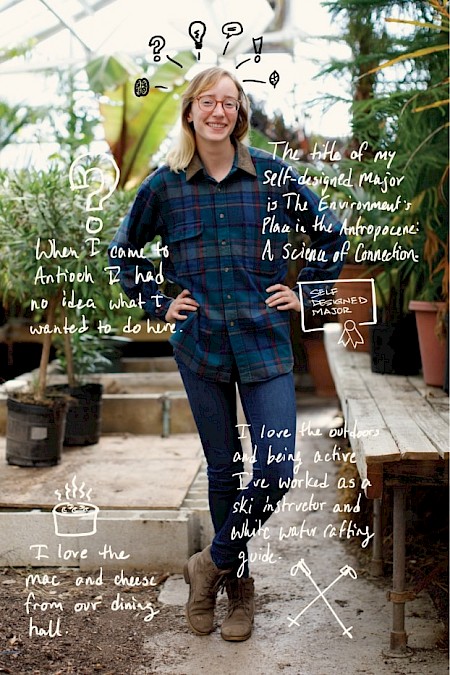 The title of my
Self-designed Major
is The Environment's
Place in the Antropocene:
A Science of Connection.
When I came to
Antioch I had
no idea what I
wanted to do here.
SELF
DESIGNED
MAJOR
I love the outdoors
and being active
I've worked as a
ski instructor and
white water rafting
guide.
I love the
mac and cheese
from our dining
hall.